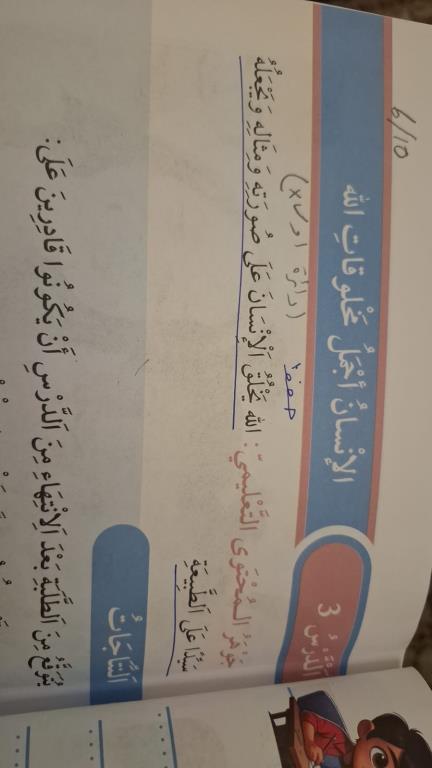 6/10
الدَّرْسُ 3
الإِنْسَانُ أَجْمَلُ مَخْلُوقَاتِ الله
حفظ (دائرة او x)
جَوْهَرُ الْمُحْتَوَى التَّعْلِيمِيّ: الله يَخْلُقُ الْإِنْسَانَ عَلَى صُورَتِهِ وَمِثَالِهِ وَيَجْعَلُهُ
سَيِّدًا عَلَى الطَّبِيعَةِ
النَّتَاجَاتُ
يُتَوَقَّعُ مِنَ الطَّلَبَةِ بَعْدَ الْانْتِهَاءِ مِنَ الدَّرْسِ أَنْ يَكُونُوا قَادِرِينَ عَلَى: